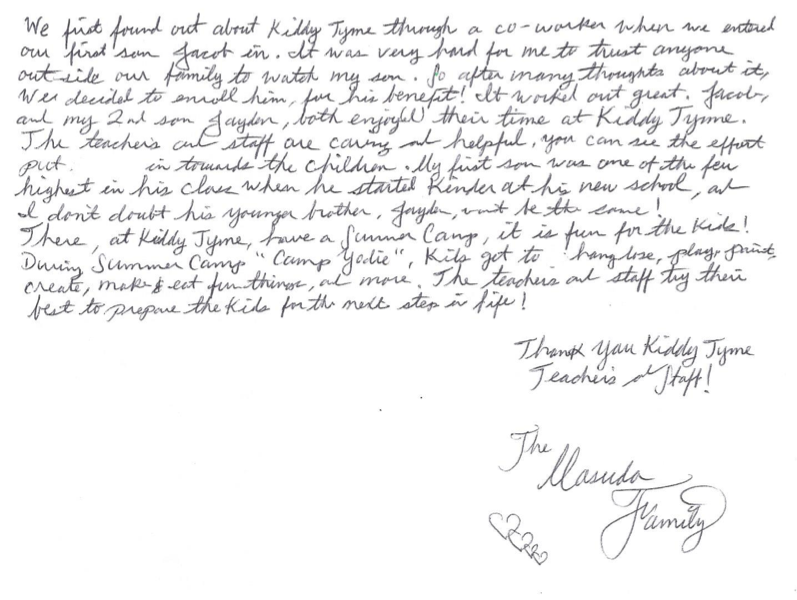 We first found out about Kiddy Tyme through a co-worker when we entered
our first son Jacob in. It was very hard for me to trust anyone
out side our family to watch my son. So after many thoughts about it,
We decided to enroll him, for his benefit! It worked out great. Jacob,
and my 2nd son Jayden, both enjoyed their time at Kiddy Tyme.
The teachers and staff are caring and helpful, you can see the effort
put in towards the children. My first son was one of the few
highest in his class when he started Kinder at his new school, and
I don't doubt his younger brother, Jayden, won't be the same!
There, at Kiddy Tyme, have a Summer Camp, it is fun for the Kids!
During Summer Camp "Camp Yodie", Kids get to hang lose, play, paint,
create, make & eat fun things, and more. The teachers and staff try their
best to prepare the Kids for the next step in life!
Thank You Kiddy Tyme
Teachers and Staff!
The
Masuda
Family